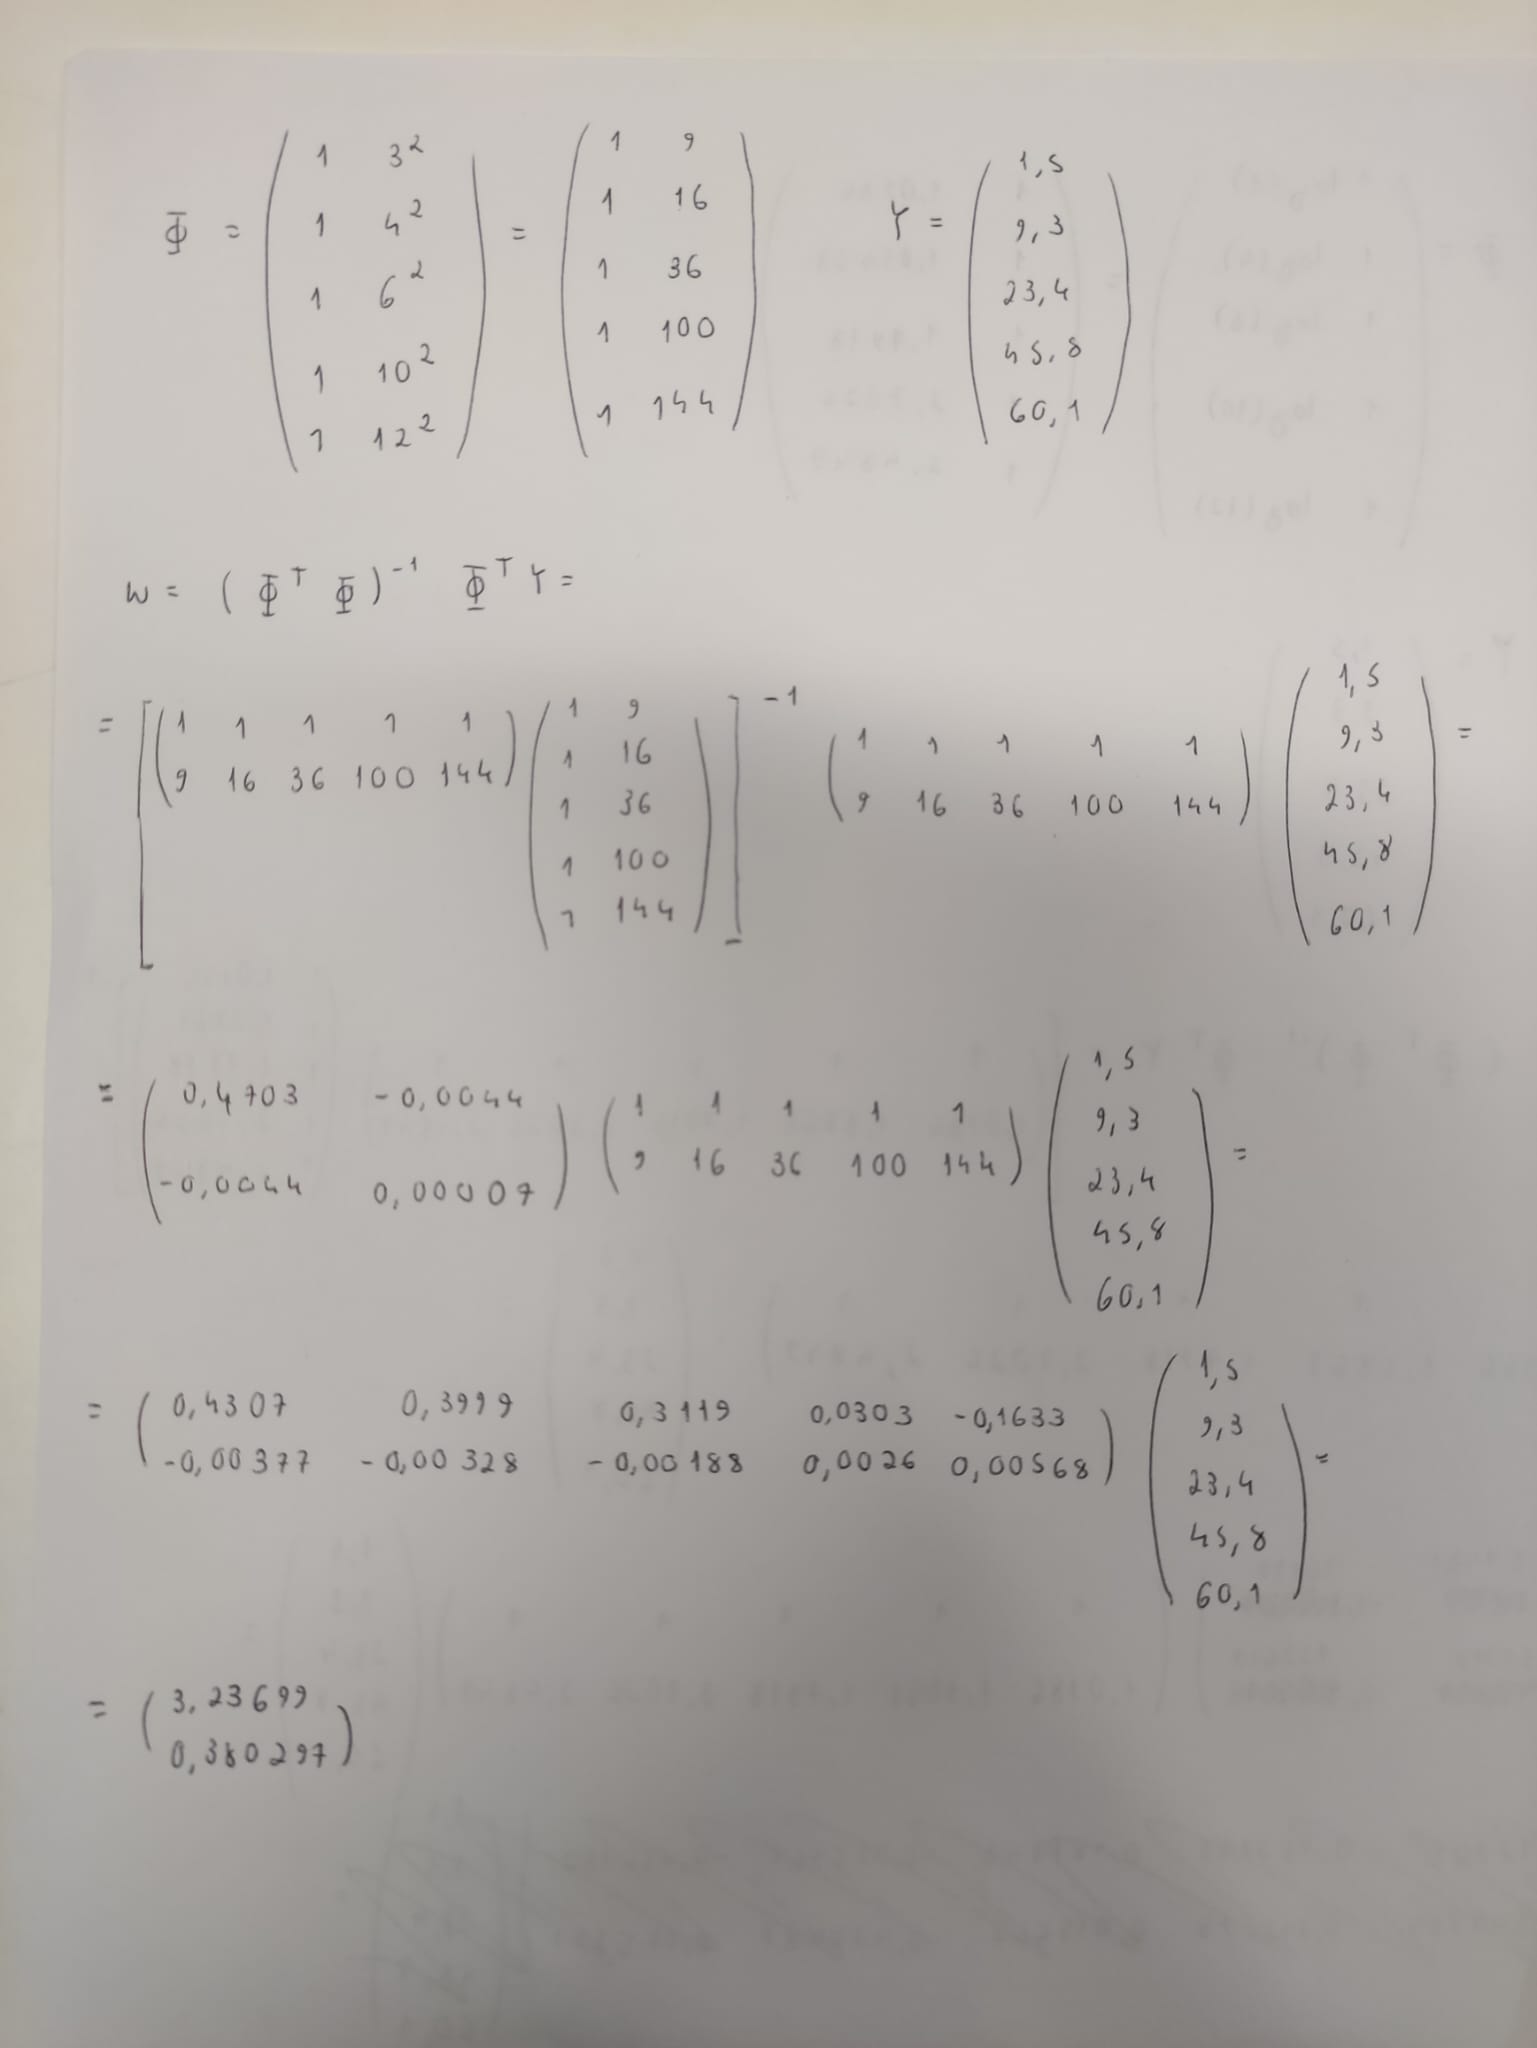 Φ = ( 1 3² ; 1 4² ; 1 6² ; 1 10² ; 1 12² ) = ( 1 9 ; 1 16 ; 1 36 ; 1 100 ; 1 144 ) Y = ( 1,5 ; 9,3 ; 23,4 ; 45,8 ; 60,1 )
w = ( Φᵀ Φ )⁻¹ Φᵀ Y =
= [ ( 1 1 1 1 1 ; 9 16 36 100 144 ) ( 1 9 ; 1 16 ; 1 36 ; 1 100 ; 1 144 ) ]⁻¹ ( 1 1 1 1 1 ; 9 16 36 100 144 ) ( 1,5 ; 9,3 ; 23,4 ; 45,8 ; 60,1 ) =
= ( 0,4703 -0,0044 ; -0,0044 0,00007 ) ( 1 1 1 1 1 ; 9 16 36 100 144 ) ( 1,5 ; 9,3 ; 23,4 ; 45,8 ; 60,1 ) =
= ( 0,4307 0,3999 0,3119 0,0303 -0,1633 ; -0,00377 -0,00328 -0,00188 0,0026 0,00568 ) ( 1,5 ; 9,3 ; 23,4 ; 45,8 ; 60,1 ) =
= ( 3,23699 ; 0,380297 )